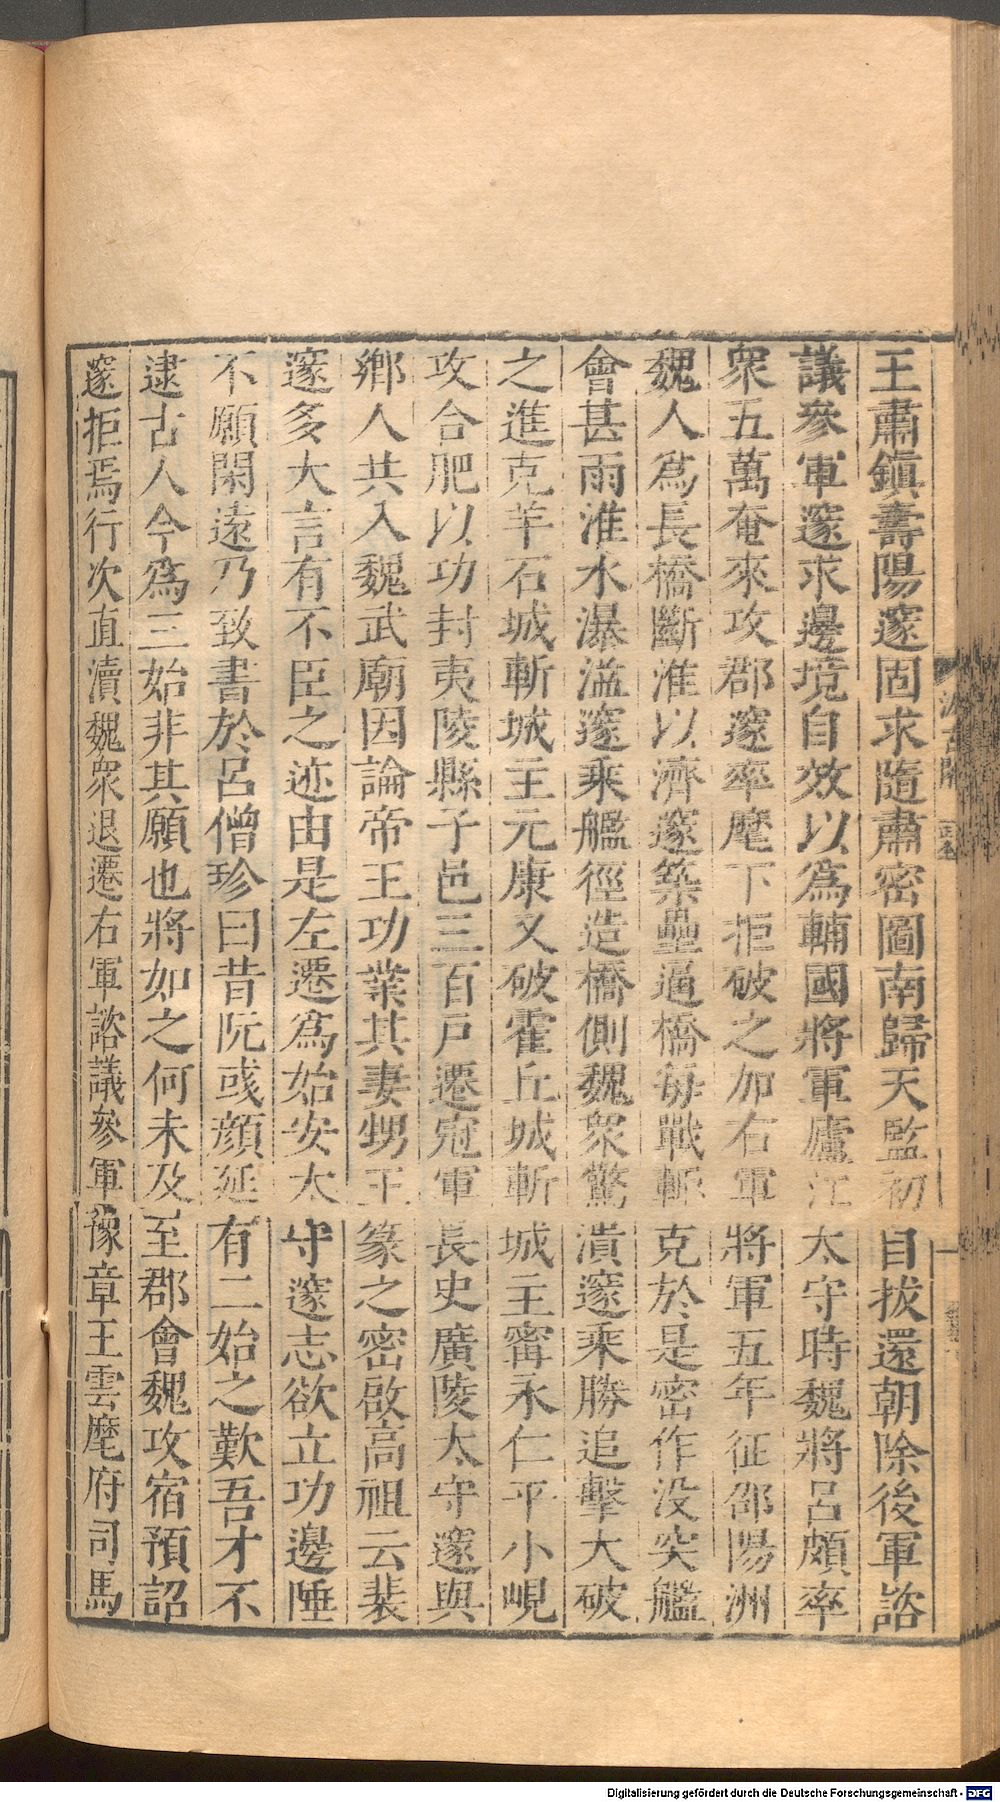 王肅鎮壽陽邃固求隨肅密圖南歸天監初自拔還朝除後軍諮
議參軍邃求邊境自效以爲輔國將軍廬江太守時魏將呂頗率
衆五萬奄來攻郡邃率麾下拒破之加右軍將軍五年征邵陽洲
魏人爲長橋斷淮以濟邃築壘逼橋每戰輒克於是密作没突艦
會甚雨淮水瀑溢邃乘艦徑造橋側魏衆驚潰邃乘勝追擊大破
之進克羊石城斬城主元康又破霍丘城斬城主甯永仁平小峴
攻合肥以功封夷陵縣子邑三百戶遷冠軍長史廣陵太守邃與
鄉人共入魏武廟因論帝王功業其妻甥王篆之密啟高祖云裴
邃多大言有不臣之迹由是左遷爲始安太守邃志欲立功邊陲
不願閑遠乃致書於呂僧珍曰昔阮彧顔延有二始之歎吾才不
逮古人今爲三始非其願也將如之何未及至郡會魏攻宿預詔
邃拒焉行次直瀆魏衆退遷右軍諮議參軍豫章王雲麾府司馬
汲古閣
Digitalisierung gefördert durch die Deutsche Forschungsgemeinschaft - DFG